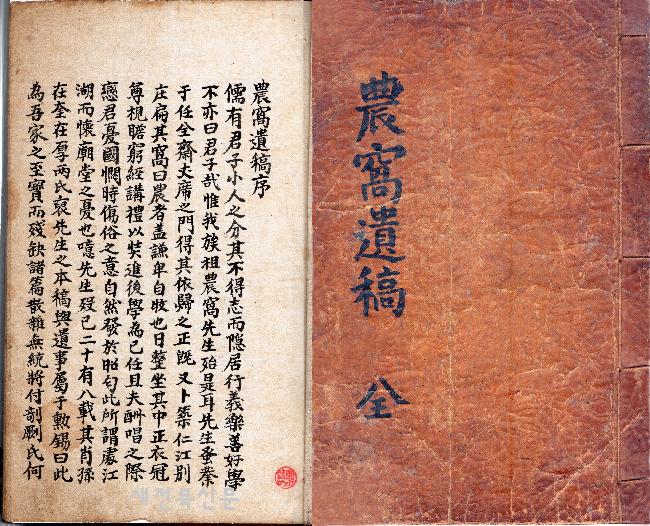 農窩遺稿 全
農窩遺稿序
儒有君子小人之分其不得志而隱居行義樂善好學
不亦曰君子哉惟我族祖農窩先生殆是耳先生蚤
于任全齋丈席之門得其依歸之正旣又卜築仁江別
庄扁其窩曰農者盖謙卑自牧也日整坐其中正衣冠
尊視瞻窮經講禮以奬進後學為己任且夫酬唱之際
戀君憂國憫時傷俗之意自然發於句此所謂處江
湖而懷廟堂之憂也噫先生歿已二十有八載其肖孫
在奎在厚兩氏裒先生之本稿與遺事屬于勲錫曰此
為吾家之至寶而殘缺諸篇散雜無統將付剞劂氏何
새전북신문